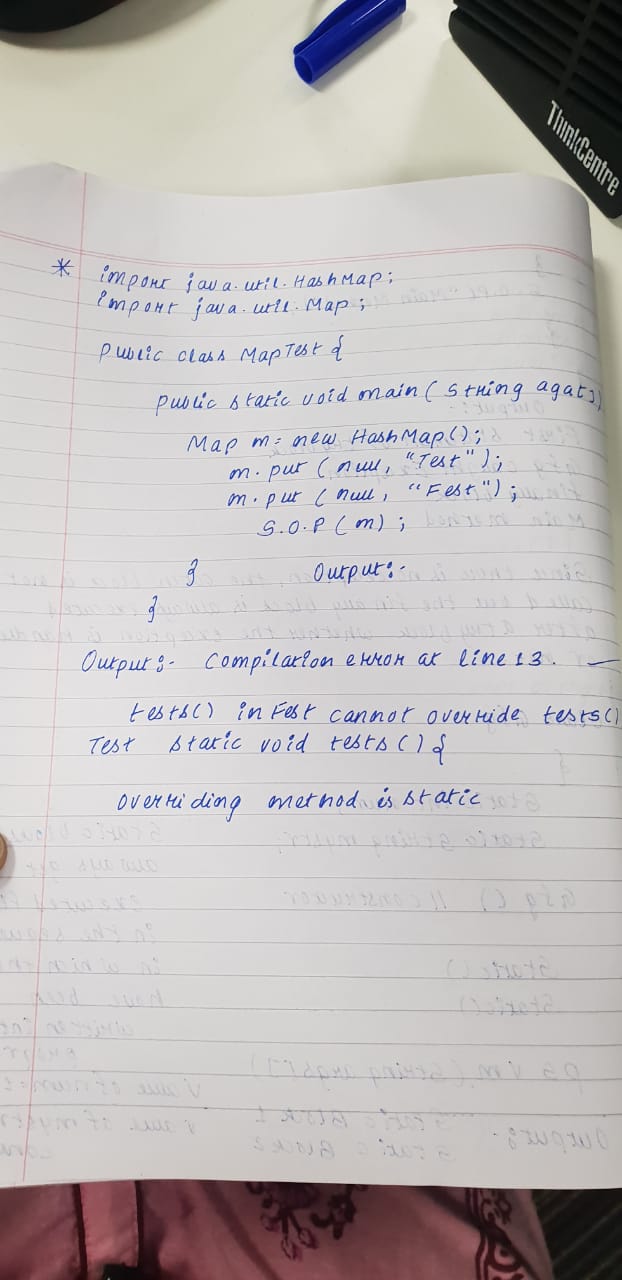 ThinkCentre
* import java.util.HashMap;
import java.util.Map;
public class MapTest {
public static void main( String agats)
Map m = new HashMap();
m.put (null, "Test");
m.put (null, "Fest");
S.O.P(m);
} Output:-
}
Output:- Compilation error at line 13. —
tests() in Fest cannot override tests()
Test static void tests () {
overriding method is static